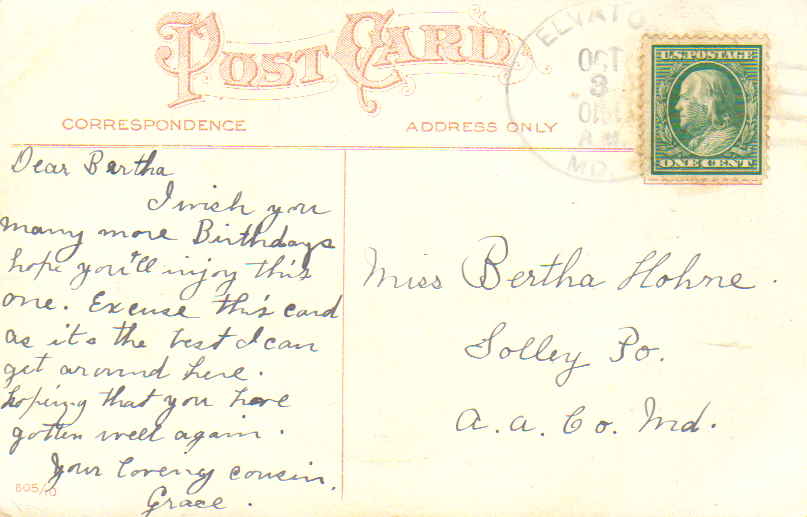 POST CARD
ELVATO
OCT
3
A.M.
MD.
U.S. POSTAGE
ONE CENT
CORRESPONDENCE
ADDRESS ONLY
Dear Bertha
I wish you
many more Birthdays
hope you'll injoy this
one. Excuse this card
as it's the best I can
get around here.
hoping that you have
gotten well again.
Your loveing cousin,
Grace.
805/10
Miss Bertha Hohne.
Solley Po.
A. A. Co. Md.